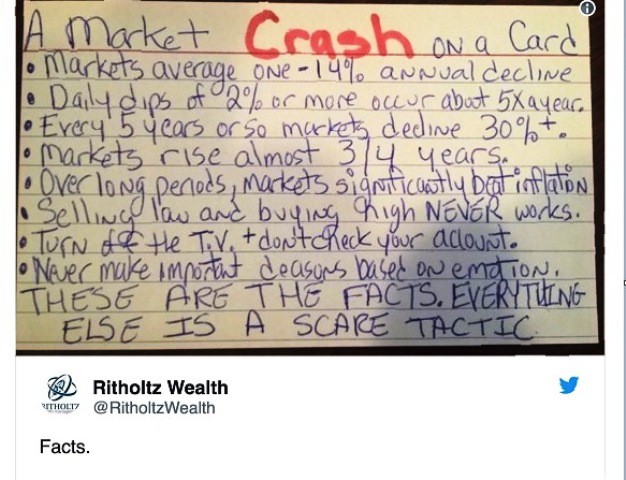 A Market Crash ON a Card
• Markets average ONE -14% annual decline
• Daily dips of 2% or more occur about 5Xayear.
• Every 5 years or so markets decline 30%+.
• Markets rise almost 3/4 years.
• Over long periods, markets significantly beat inflation
• Selling law and buying high NEVER works.
• Turn off the T.V. + don't check your account.
• Never make important decasons based on emotion.
THESE ARE THE FACTS. EVERYTHING
ELSE IS A SCARE TACTIC
RITHOLTZ
Ritholtz Wealth
@RitholtzWealth
Facts.